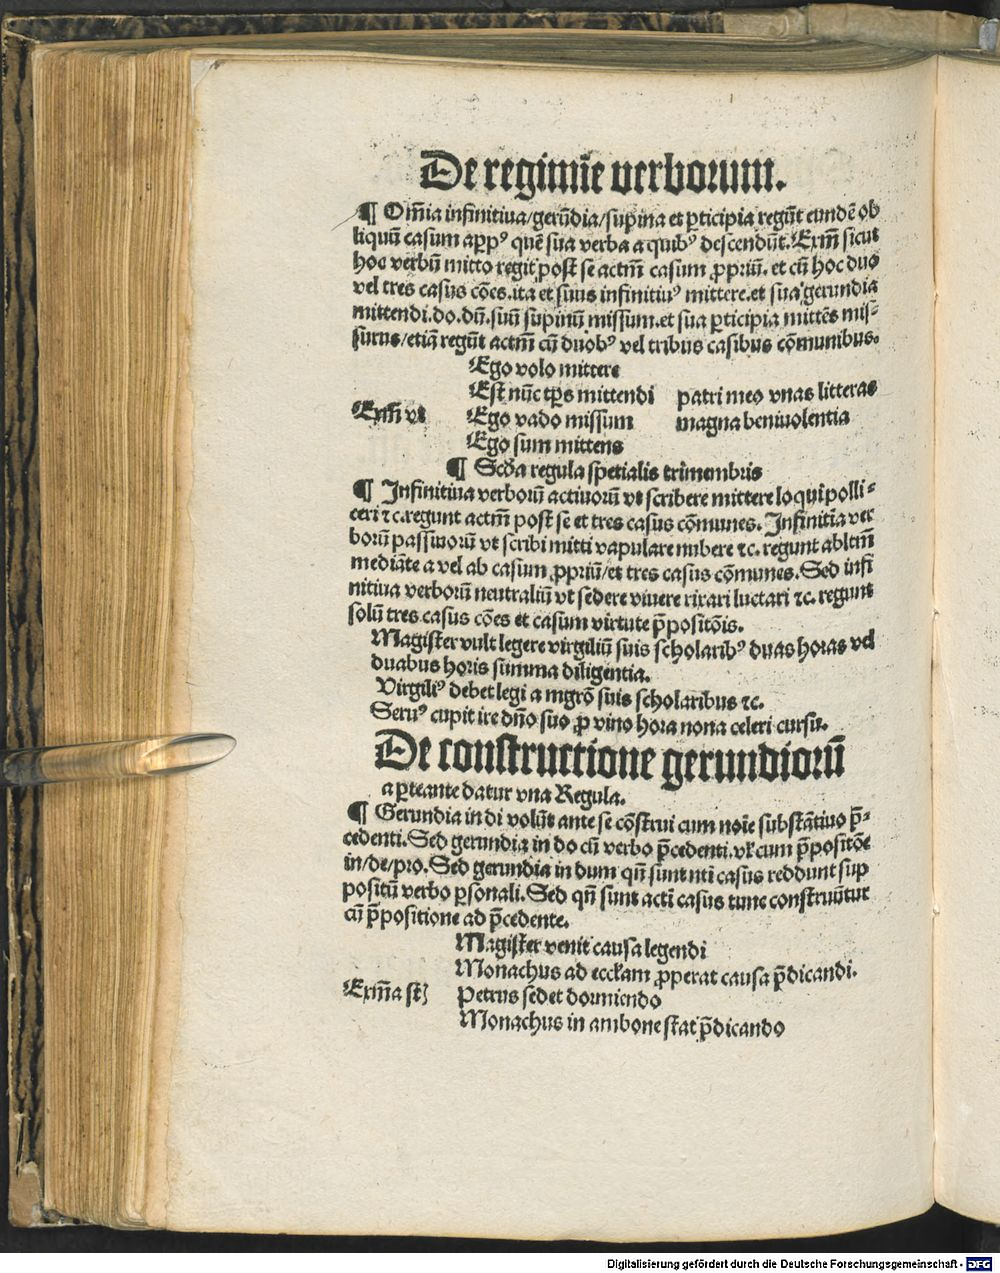 De regimīe verborum.
¶ Om̄ia infinitiua/gerūdia/supina et p̲ticipia regūt eundē ob
liquū casum app̲ꝰ quē sua verba a quibꝰ descendūt. Exm̄ sicut
hoc verbū mitto regit post se actm̄ casum ꝓpriū. et cū hoc duo
vel tres casus cōes. ita et suus infinitiuꝰ mittere. et sua gerundia
mittendi. do. dū. suū supinū missum. et sua p̲ticipia mittēs mis⸗
surus/etiā regūt actm̄ cū duobꝰ vel tribus casibus cōmunibus.
Ego volo mittere
Est nūc tp̄s mittendi patri meo vnas litteras
Exm̄ vt Ego vado missum magna beniuolentia
Ego sum mittens
¶ Scd̄a regula spetialis trimembris
¶ Infinitiua verborū actiuorū vt scribere mittere loqui polli⸗
ceri ⁊c. regunt actm̄ post se et tres casus cōmunes. Infinitīa ver
borū passiuorū vt scribi mitti vapulare nubere ⁊c. regunt abltm̄
mediāte a vel ab casum ꝓpriū/et tres casus cōmunes. Sed infi
nitiua verborū neutraliū vt sedere viuere rixari luctari ⁊c. regunt
solū tres casus cōes et casum virtute p̄positōis.
Magister vult legere virgiliū suis scholaribꝰ duas horas vel
duabus horis summa diligentia.
Virgiliꝰ debet legi a mgr̄o suis scholaribus ⁊c.
Seruꝰ cupit ire dn̄o suo ꝓ vino hora nona celeri cursu.
De constructione gerundiorū
a p̲te ante datur vna Regula.
¶ Gerundia in di volūt ante se cōstrui cum noīe substātiuo p̄⸗
cedenti. Sed gerundia in do cū verbo p̄cedenti. vł cum p̄positōe
in/de/pro. Sed gerundia in dum qn̄ sunt nti casus reddunt sup
positū verbo p̲sonali. Sed qn̄ sunt acti casus tunc construūtur
cū p̄positione ad p̄cedente.
Magister venit causa legendi
Monachus ad eccłam ꝓperat causa p̄dicandi.
Exm̄a st̄ Petrus sedet dormiendo
Monachus in ambone stat p̄dicando
Digitalisierung gefördert durch die Deutsche Forschungsgemeinschaft - DFG